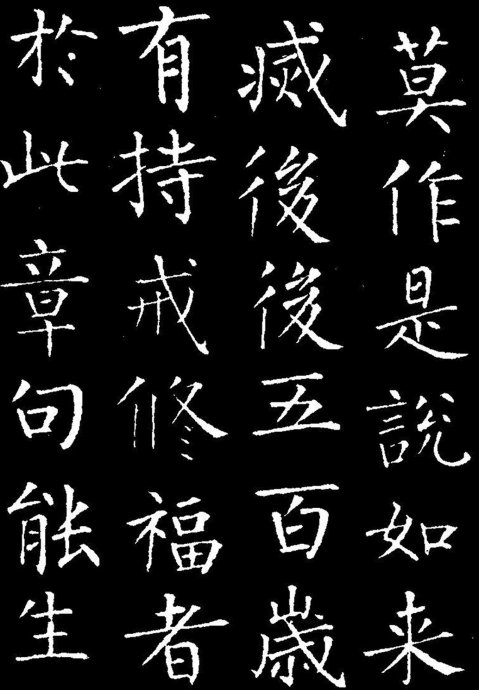 莫作是說如来
滅後後五百歳
有持戒修福者
於此章句能生